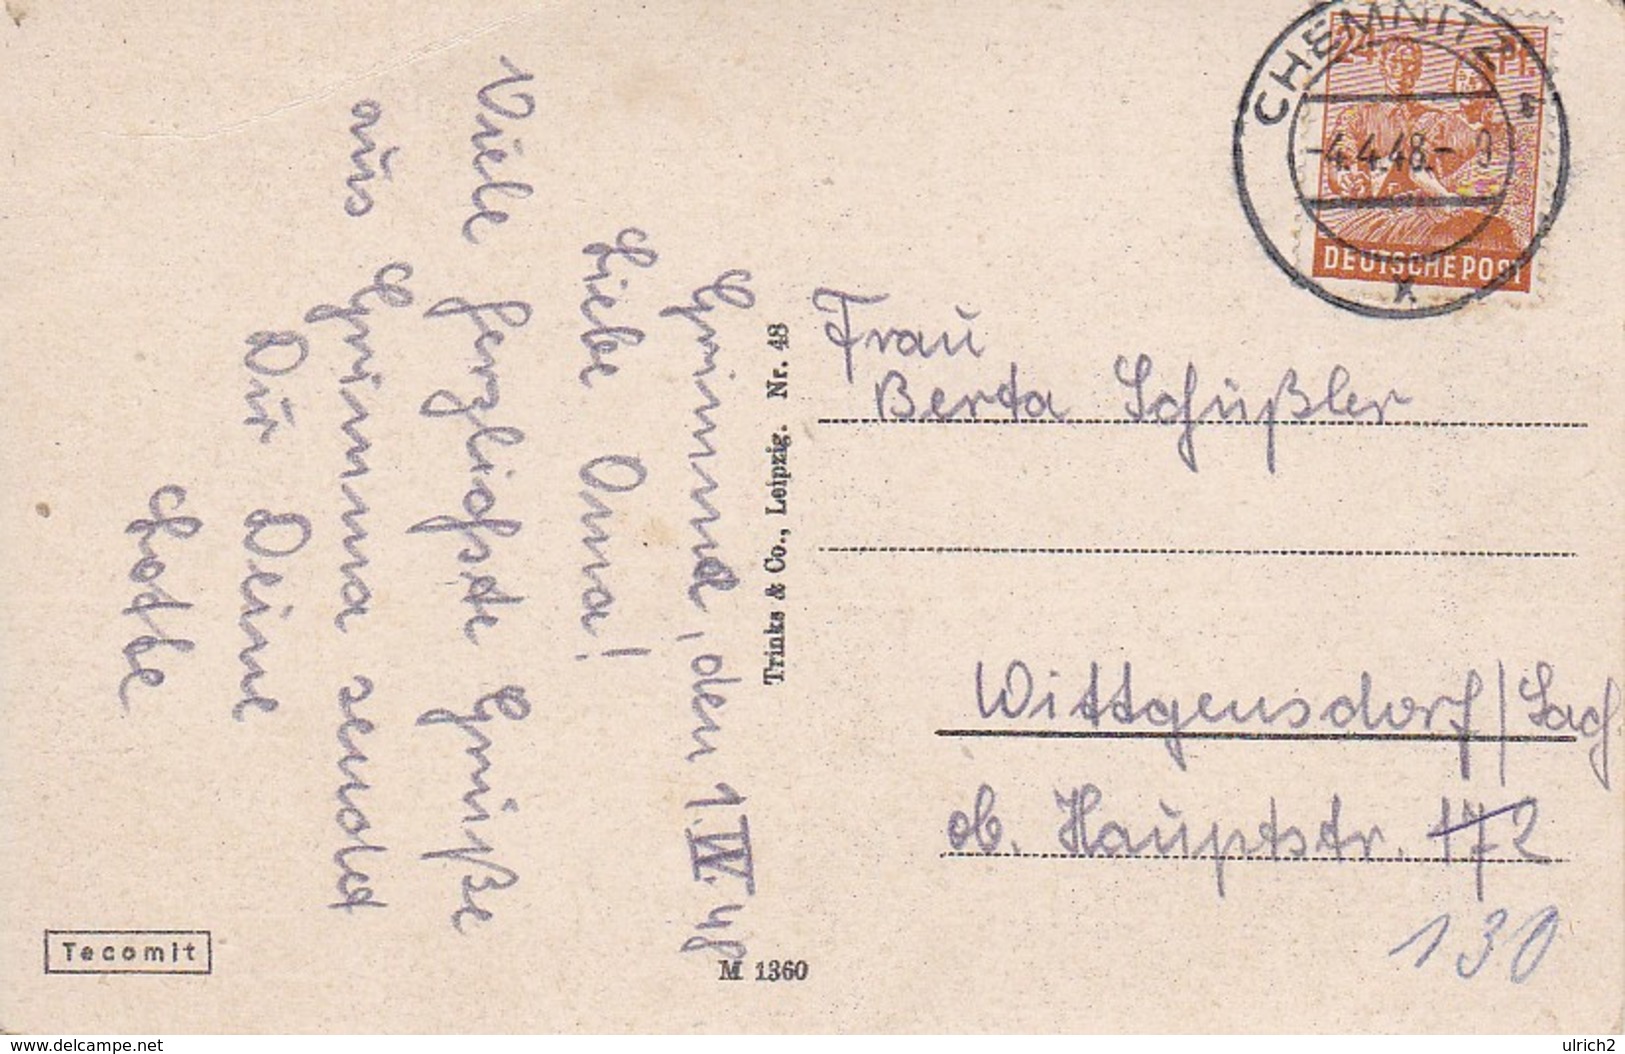 Grimma, den 1.IV.48
Liebe Oma!
Viele herzlichste Grüße
aus Grimma sendet
Dir Deine
Lotte
Trinks & Co., Leipzig. Nr. 48
M 1360
Tecomit
CHEMNITZ
-4.4.48.- 9
24 Pf.
DEUTSCHE POST
Frau
Berta Schüßler
Wittgensdorf/Sach.
ob. Hauptstr. 172
130
delcampe.net
ulrich2